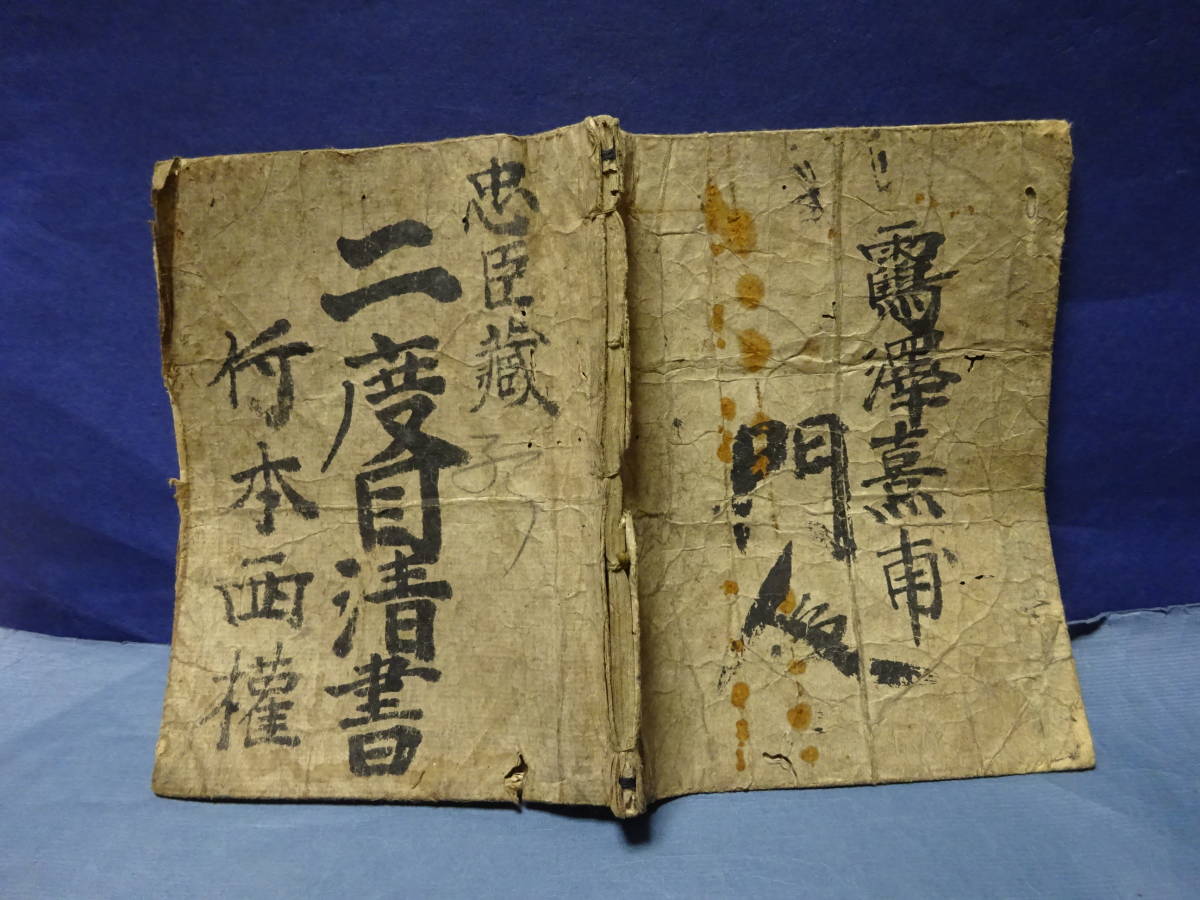 靍澤熹甫
門人
忠臣藏
二度目清書
竹本西權